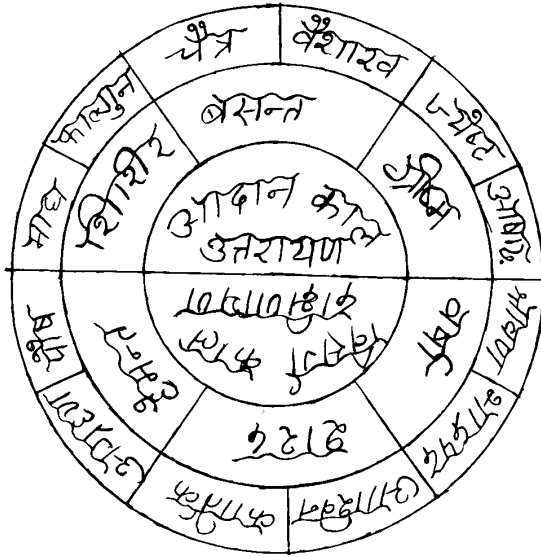 चैत्र
वैशाख
ज्यैष्ट
आषाढ़
श्रावण
भाद्रपद
आश्विन
कार्तिक
अग्रहण
पौष
माघ
फाल्गुन
बसन्त
ग्रीष्म
वर्षा
शरद
हेमन्त
शिशिर
आदान काल
उत्तरायण
दक्षिणायण
विसर्ग काल